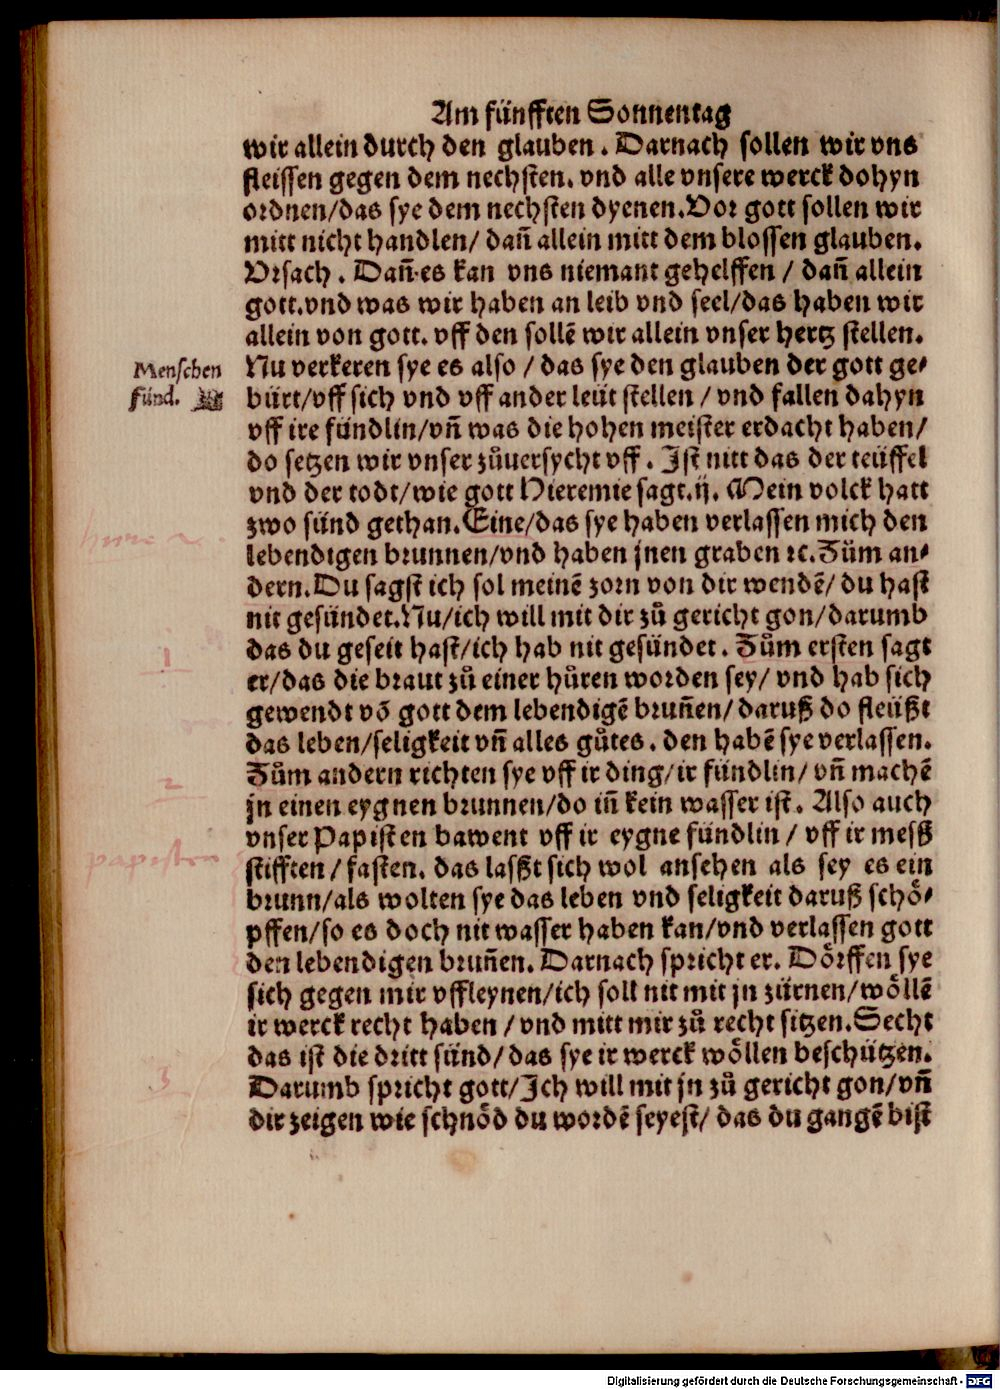 Am fünfften Sonnentag
wir allein durch den glauben. Darnach sollen wir vns
fleissen gegen dem nechsten. vnd alle vnsere werck dohyn
ordnen/das sye dem nechsten dyenen. Vor gott sollen wir
mitt nicht handlen/ dañ allein mitt dem blossen glauben.
Vrsach. Dañ es kan vns niemant gehelffen / dañ allein
gott. vnd was wir haben an leib vnd seel/das haben wir
allein von gott. vff den sollē wir allein vnser hertz stellen.
Menschen
fünd.
Nu verkeren sye es also / das sye den glauben der gott ge⸗
bürt/vff sich vnd vff ander leüt stellen / vnd fallen dahyn
vff ire fündlin/vñ was die hohen meister erdacht haben/
do setzen wir vnser zůuersycht vff. Ist nitt das der teüffel
vnd der todt/wie gott Hieremie sagt.ij. Mein volck hatt
zwo sünd gethan. Eine/das sye haben verlassen mich den
lebendigen brunnen/vnd haben jnen graben ꝛc. Zům an⸗
dern. Du sagst ich sol meinē zorn von dir wendē/ du hast
nit gesündet. Nu/ich will mit dir zů gericht gon/darumb
das du geseit hast/ich hab nit gesündet. Zům ersten sagt
1
er/das die braut zů einer hůren worden sey/ vnd hab sich
gewendt võ gott dem lebendigē bruñen/ daruß do fleüßt
das leben/seligkeit vñ alles gůtes. den habē sye verlassen.
Zům andern richten sye vff ir ding/ir fündlin/ vñ machē
2
jn einen eygnen brunnen/do iñ kein wasser ist. Also auch
vnser Papisten bawent vff ir eygne fündlin / vff ir meß
papisten
stifften/ fasten. das laßt sich wol ansehen als sey es ein
brunn/als wolten sye das leben vnd seligkeit daruß schö⸗
pffen/so es doch nit wasser haben kan/vnd verlassen gott
den lebendigen bruñen. Darnach spricht er. Dörffen sye
sich gegen mir vffleynen/ich soll nit mit jn zürnen/wöllē
ir werck recht haben / vnd mitt mir zů recht sitzen. Secht
das ist die dritt sünd/das sye ir werck wöllen beschützen.
3
Darumb spricht gott/Ich will mit jn zů gericht gon/vñ
dir zeigen wie schnöd du wordē seyest/ das du gangē bist
Digitalisierung gefördert durch die Deutsche Forschungsgemeinschaft - DFG